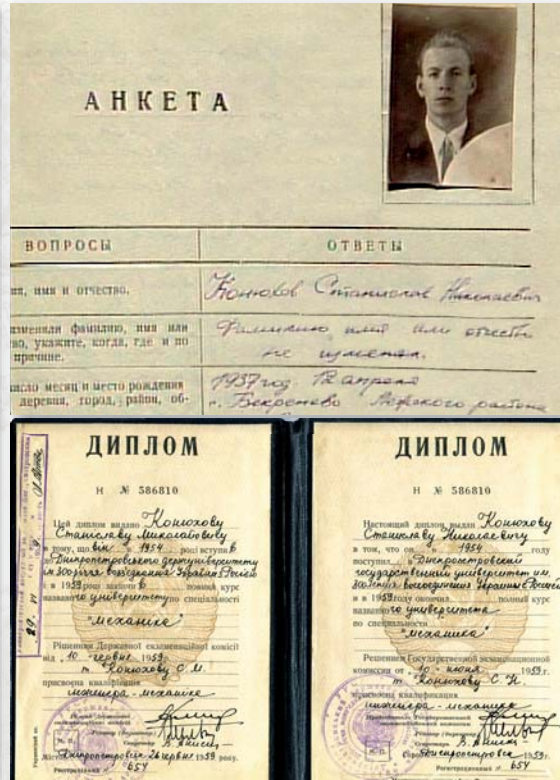 АНКЕТА
ВОПРОСЫ
ОТВЕТЫ
ия, имя и отчество.
Конюхов Станислав Николаевич
изменяли фамилию, имя или
во, укажите, когда, где и по
причине.
Фамилию имя или отчество
не изменял.
число месяц и место рождения
деревня, город, район, об-
1937 год 12 апреля
с. Бекренево
района
ДИПЛОМ
Н № 586810
Цей диплом видано Конюхову
Станіславу Миколайовичу
в тому, що він в 1954 році вступив
Дніпропетровського держуніверситету
ім. 300-річчя возз'єднання України з Росією
і в 1959 році закінчив повний курс
названого університету по спеціальності
"механіка"
Рішенням Державної екзаменаційної комісії
від 10 червня 1959 р.
т. Конюхову С. М.
присвоєна кваліфікація
інженера-механіка
М. П.
Ректор
Секретар
Дніпропетровськ 26 червня 1959 року.
Реєстраційний № 654
ДИПЛОМ
Н № 586810
Настоящий диплом выдан Конюхову
Станиславу Николаевичу
в том, что он в 1954 году
поступил в Днепропетровский
государственный университет им.
300-летия воссоединения Украины с Россией
и в 1959 году окончил полный курс
названного университета
по специальности
"механика"
Решением Государственной экзаменационной
комиссии от 10 июня 1959 г.
т. Конюхову С. Н.
присвоена квалификация
инженера-механика
М. П.
Ректор
Секретарь
Днепропетровск 1959 г.
Регистрационный № 654